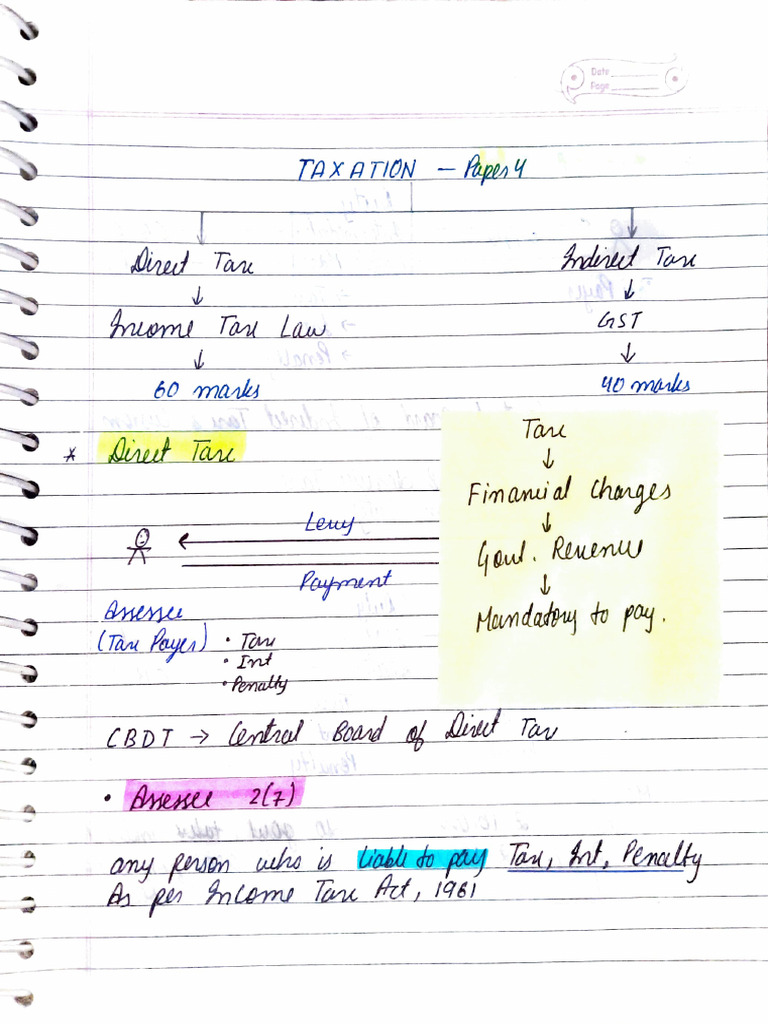 Date
Page
TAXATION - Paper 4
Direct Tax
Indirect Tax
↓
↓
Income Tax Law
GST
↓
↓
60 marks
40 marks
* Direct Tax
Tax
↓
Financial Charges
↓
Govt. Revenue
↓
Mandatory to pay.
Levy
Payment
Assessee
(Tax Payer)
• Tax
• Int
• Penalty
CBDT → Central Board of Direct Tax
• Assessee 2(7)
any person who is liable to pay Tax, Int, Penalty
As per Income Tax Act, 1961